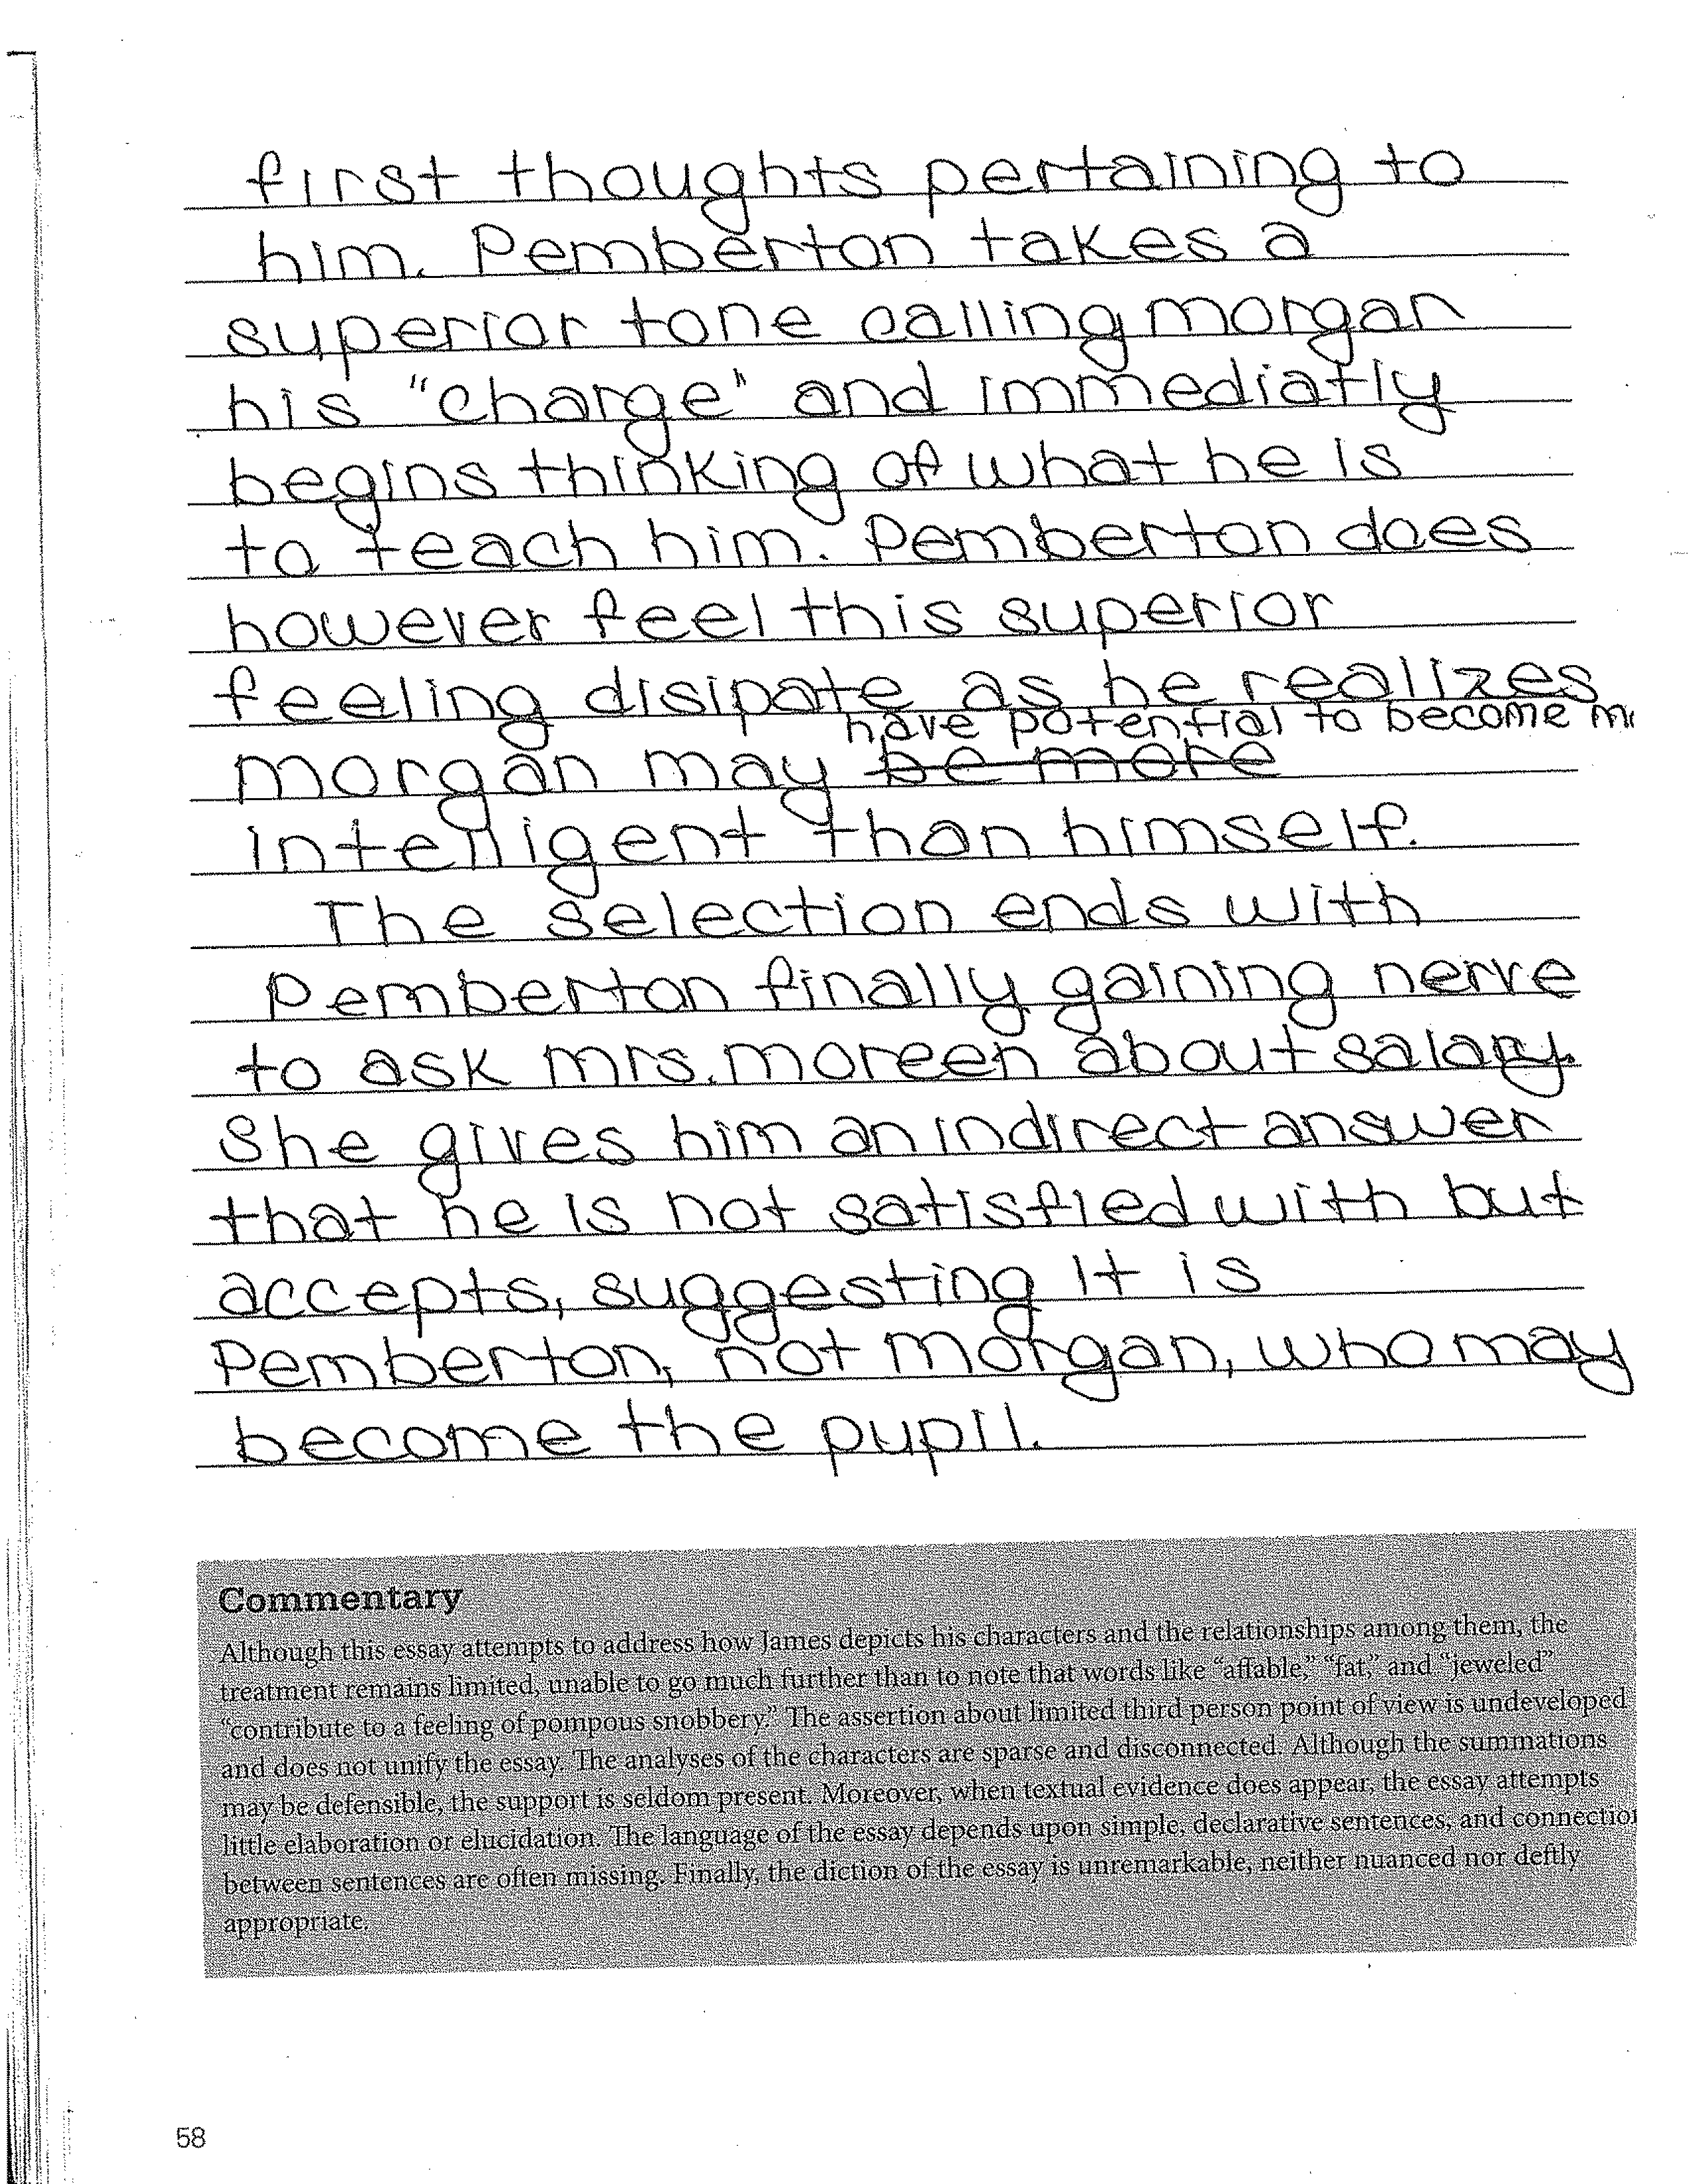 first thoughts pertaining to
him. Pemberton takes a
superior tone calling morgan
his "charge" and immediatly
begins thinking of what he is
to teach him. Pemberton does
however feel this superior
feeling disipate as he realizes
have potential to become
morgan may be more
intelligent than himself.
The selection ends with
Pemberton finally gaining nerve
to ask mrs. moreen about salary.
She gives him an indirect answer
that he is not satisfied with but
accepts, suggesting it is
Pemberton, not morgan, who may
become the pupil.
Commentary
Although this essay attempts to address how James depicts his characters and the relationships among them, the
treatment remains limited, unable to go much further than to note that words like “affable,” “fat,” and “jeweled”
“contribute to a feeling of pompous snobbery.” The assertion about limited third person point of view is undeveloped
and does not unify the essay. The analyses of the characters are sparse and disconnected. Although the summations
may be defensible, the support is seldom present. Moreover, when textual evidence does appear, the essay attempts
little elaboration or elucidation. The language of the essay depends upon simple, declarative sentences, and connection
between sentences are often missing. Finally, the diction of the essay is unremarkable, neither nuanced nor deftly
appropriate.
58